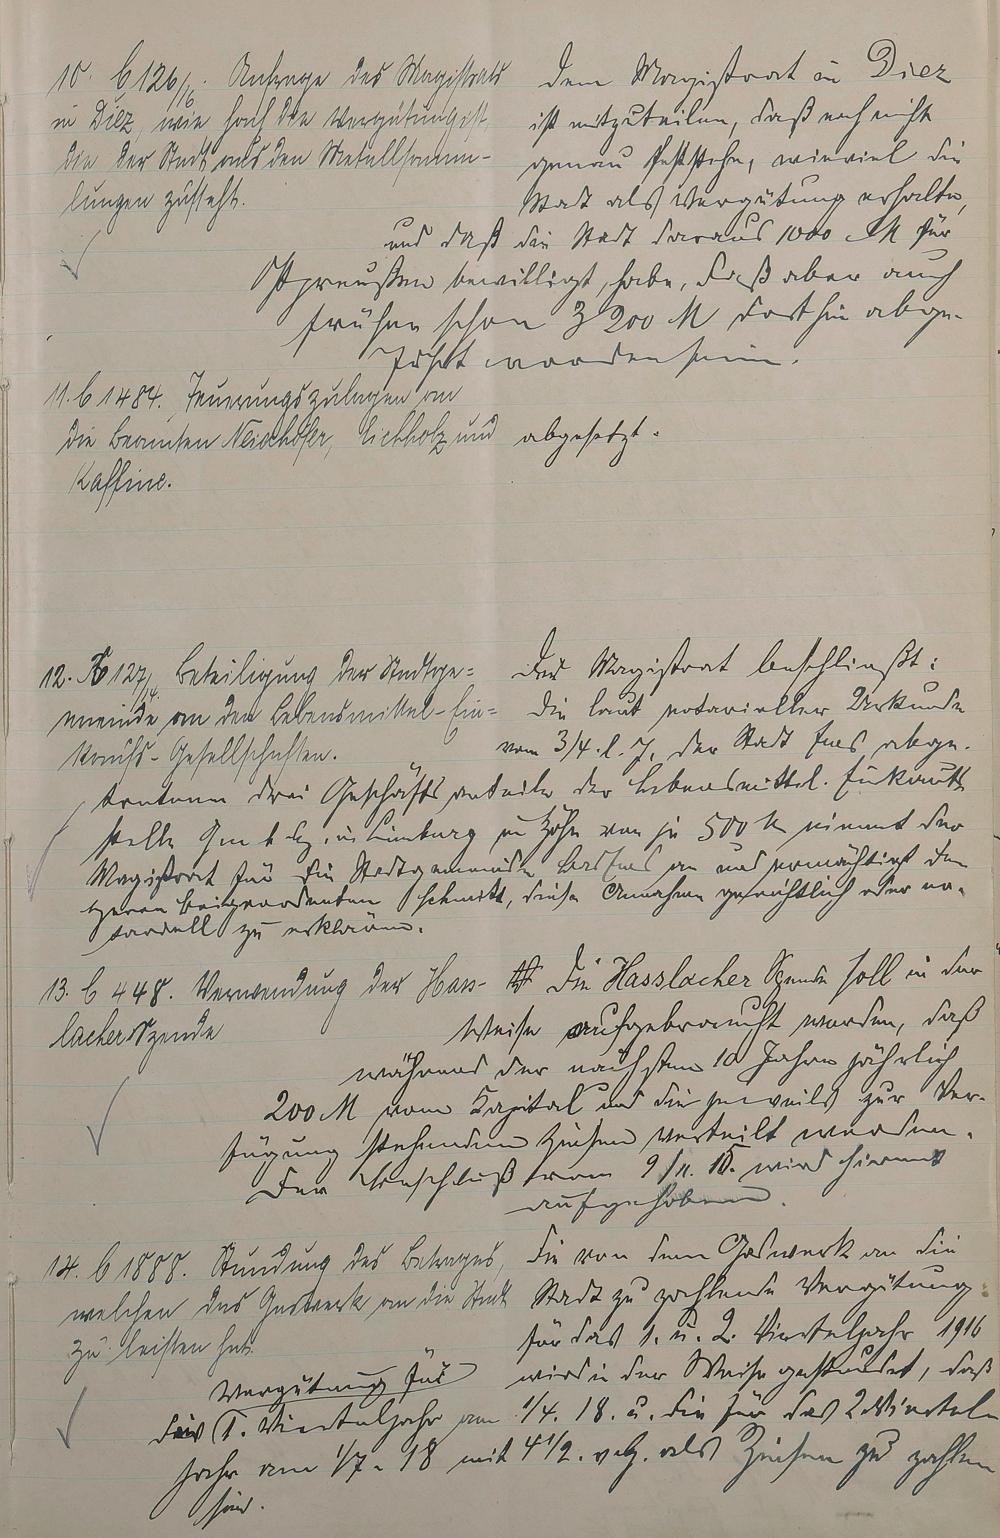 10. b 126/16. Anfrage des Magistrats
in Diez, wie hoch die Vergütung ist,
die der Stadt aus den Metallsamm-
lungen zusteht.
Dem Magistrat in Diez
ist mitzuteilen, daß noch nicht
genau feststehe, wieviel die
Stadt als Vergütung erhalte,
und daß die Stadt daraus 1000 M für
Ostpreußen bewilligt habe, daß aber auch
früher schon 3200 M dorthin abge-
führt worden seien.
11. b 1484. Teuerungszulagen an
die Beamten Neidhöfer, Eichholz und
Kaffine.
abgesetzt.
12. b 127/14. Beteiligung der Stadtge-
meinde an den Lebensmittel-Ein-
kaufs-Gesellschaften.
Der Magistrat beschließt:
Die laut notarieller Urkunde
vom 3/4. l. J. der Stadt abge-
tretenen drei Geschäftsanteile der Lebensmittel-Einkaufs
stelle G m b H, in Limburg in Höhe von je 500 M nimmt der
Magistrat für die Stadtgemeinde an und ermächtigt den
Herrn Beigeordneten Schmitt, diese Annahme gerichtlich oder no-
tariell zu erklären.
13. b 448. Verwendung der Hass-
lacher Spende
Die Hasslacher Spende soll in der
Weise aufgebraucht werden, daß
während der nächsten 10 Jahre jährlich
200 M vom Kapital und die jeweils zur Ver-
fügung stehenden Zinsen verteilt werden.
Der Beschluß vom 9/11. 15. wird hiermit
aufgehoben.
14. b 1888. Stundung des Betrages,
welchen das Gaswerk an die Stadt
zu leisten hat.
Die von dem Gaswerk an die
Stadt zu zahlende Vergütung
für das 1. u. 2. Vierteljahr 1916
wird in der Weise gestundet, daß
Vergütung für
die 1. Vierteljahr am 1/4. 18. u. die für das 2. Viertel-
jahr am 1/7. 18 mit 4 1/2. v.H. als Zinsen zu zahlen
sind.